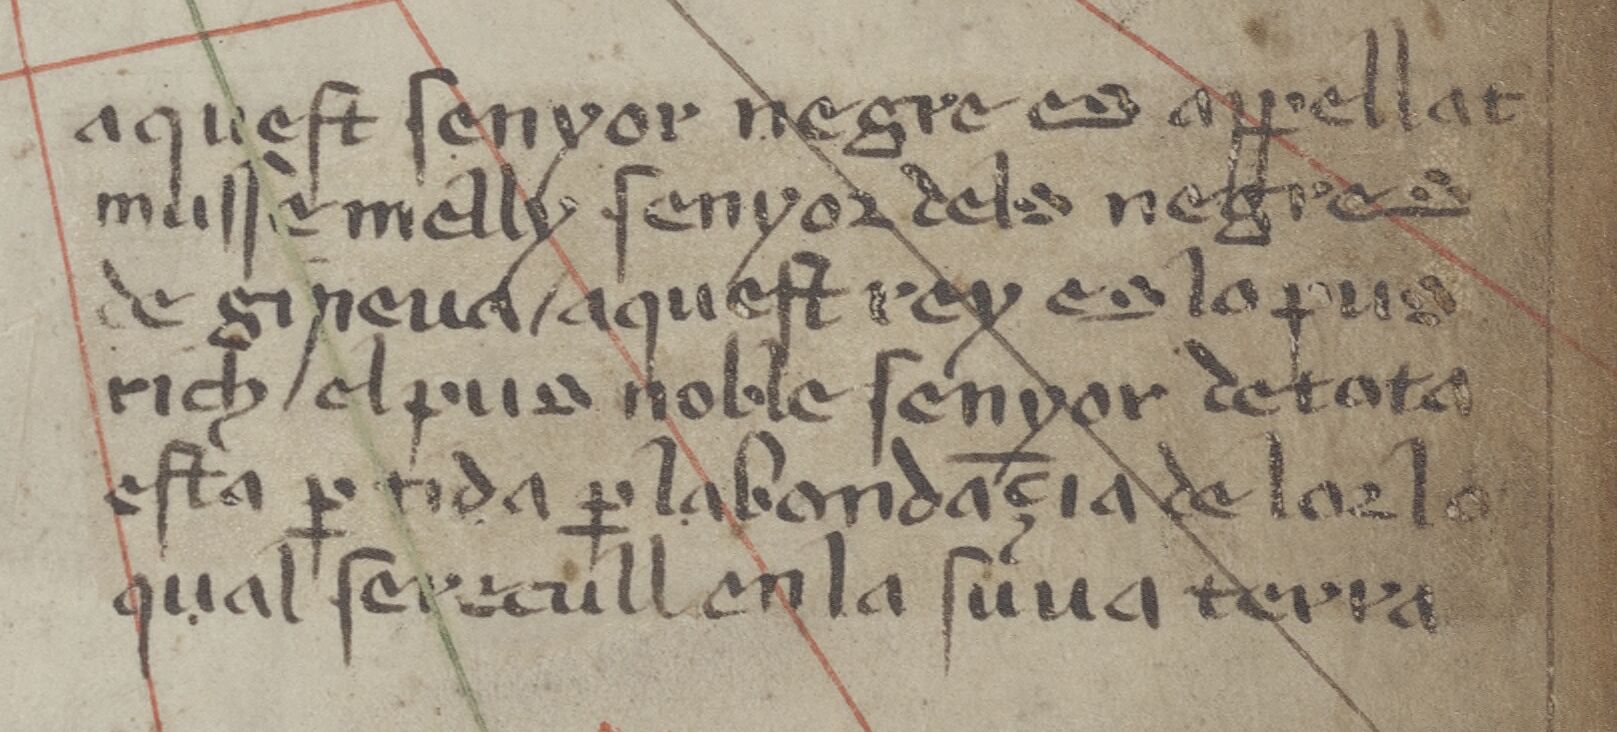 aquest senyor negre es appellat
musse melly senyor dels negres
de gineua / aquest rey es lo pus
rich / el pus noble senyor de tota
esta ꝑtida ꝑ labondaçia de lor lo
qual se recull en la suua terra